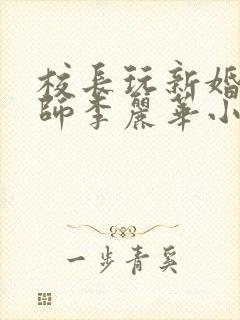 校長玩新婚
師李麗華小
一步青奚